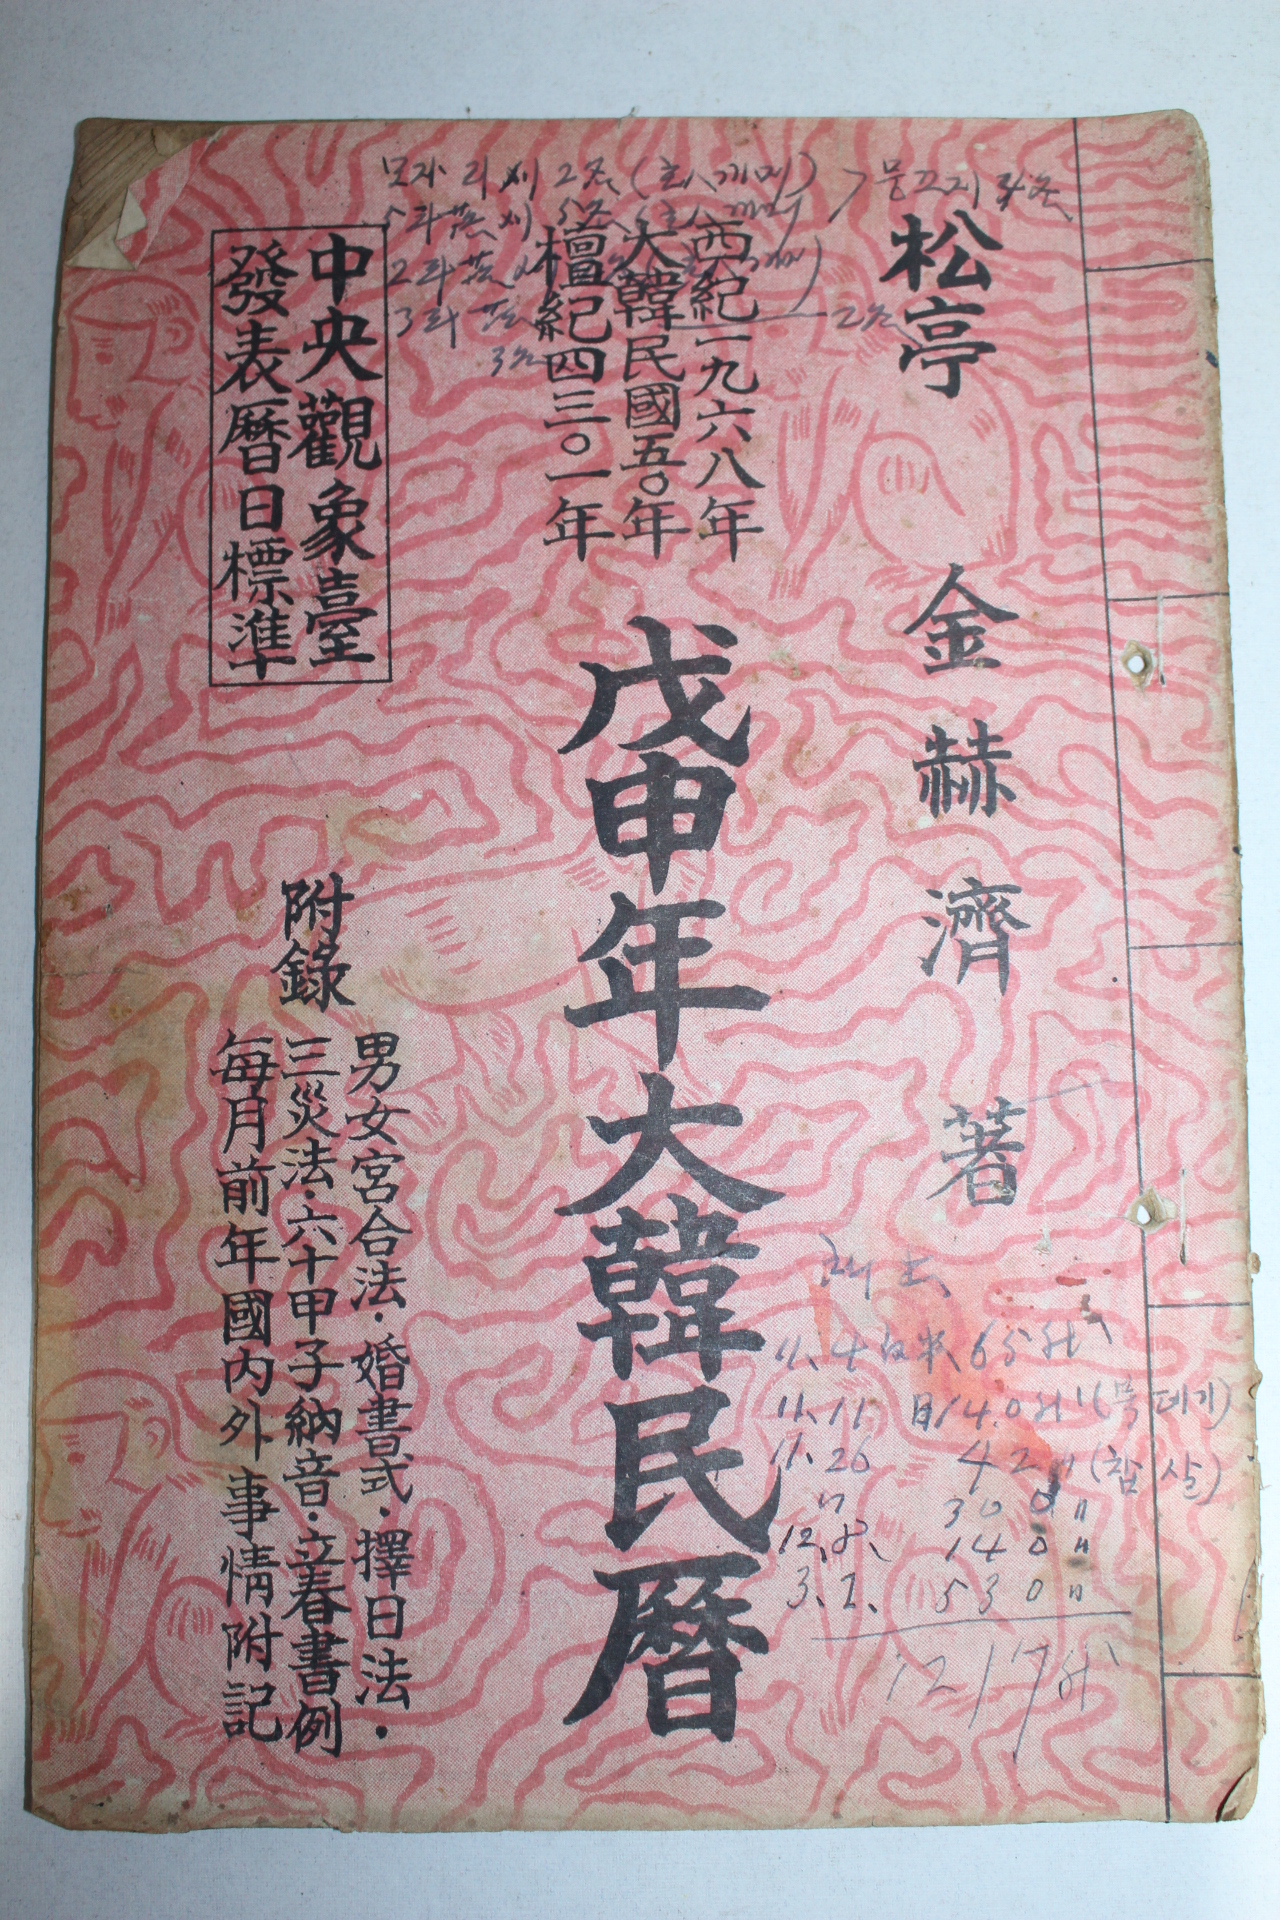 松亭 金赫濟 著
西紀一九六八年
大韓民國五〇年
檀紀四三〇一年
戊申年大韓民曆
中央觀象臺
發表曆日標準
附錄
男女宮合法·婚書式·擇日法·
三災法·六十甲子納音·立春書例
每月前年國內外事情附記
11. 4 白米
11. 11
11. 26 42 〃 (찹쌀)
〃 30 0 〃
12. 8. 14 0 〃
53 0 〃
1217